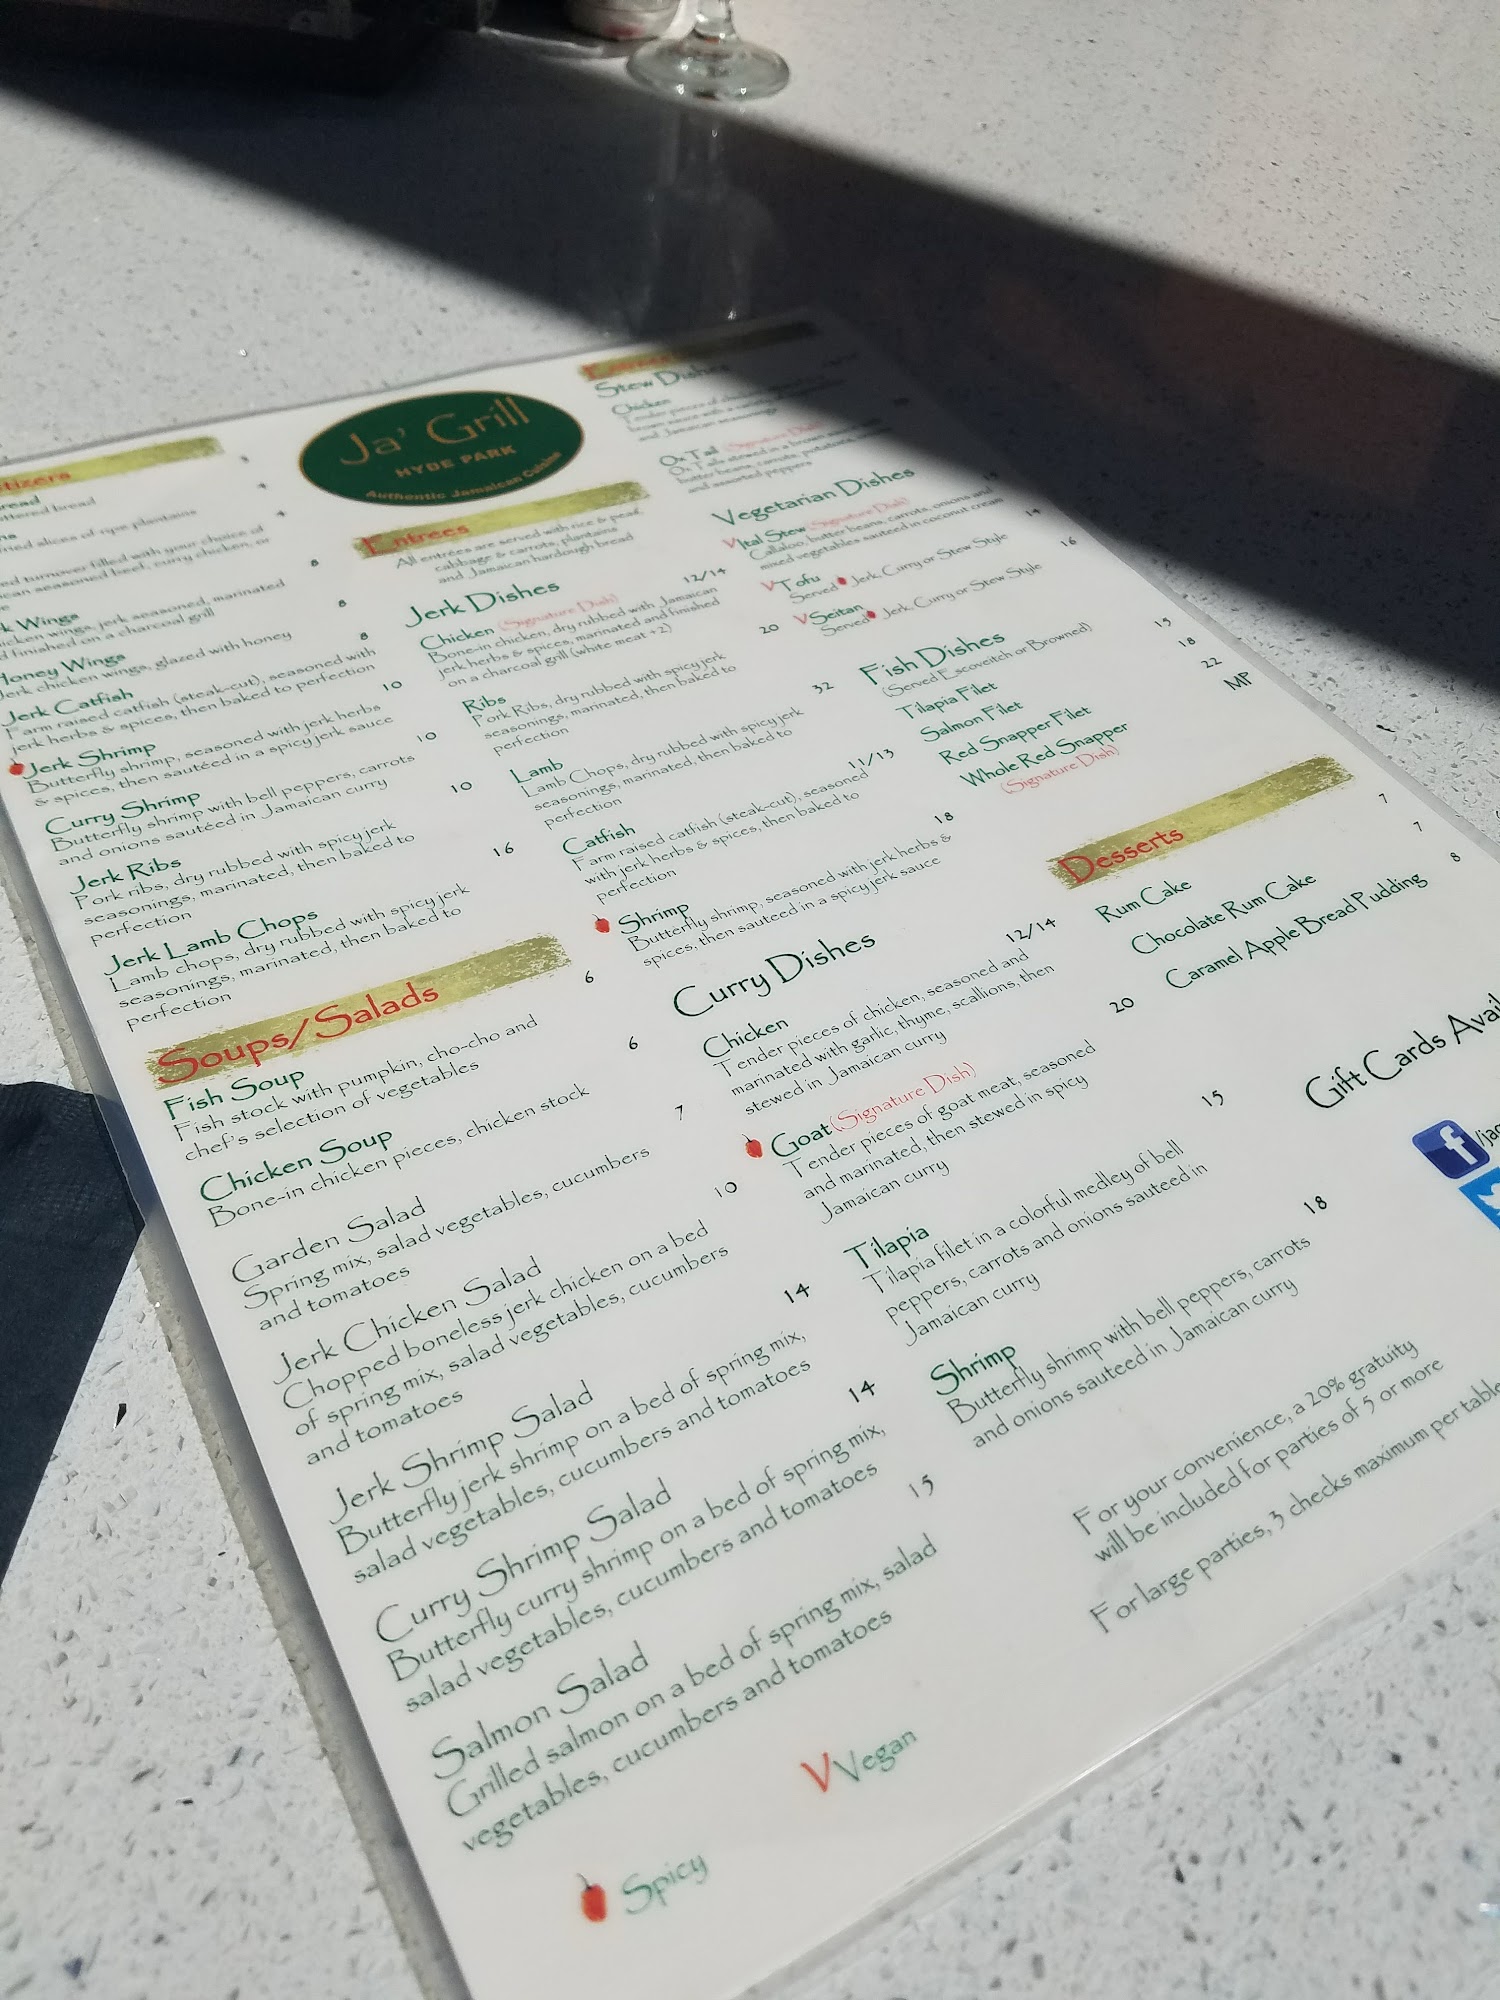 Ja' Grill
HYDE PARK
Authentic Jamaican Cuisine
3
4
4
fried slices of ripe plantains
turnover filled with your choice of
seasoned beef, curry chicken, or
Wings 8
chicken wings, jerk seasoned, marinated
finished on a charcoal grill
Honey Wings 8
Jerk chicken wings, glazed with honey
Jerk Catfish 8
Farm raised catfish (steak-cut), seasoned with
jerk herbs & spices, then baked to perfection
Jerk Shrimp 10
Butterfly shrimp, seasoned with jerk herbs
& spices, then sautéed in a spicy jerk sauce
Curry Shrimp 10
Butterfly shrimp with bell peppers, carrots
and onions sautéed in Jamaican curry
Jerk Ribs 10
Pork ribs, dry rubbed with spicy jerk
seasonings, marinated, then baked to
perfection
Jerk Lamb Chops 16
Lamb chops, dry rubbed with spicy jerk
seasonings, marinated, then baked to
perfection
Soups/Salads
Fish Soup 6
Fish stock with pumpkin, cho-cho and
chef's selection of vegetables
Chicken Soup 6
Bone-in chicken pieces, chicken stock
Garden Salad 7
Spring mix, salad vegetables, cucumbers
and tomatoes
Jerk Chicken Salad 10
Chopped boneless jerk chicken on a bed
of spring mix, salad vegetables, cucumbers
and tomatoes
Jerk Shrimp Salad 14
Butterfly jerk shrimp on a bed of spring mix,
salad vegetables, cucumbers and tomatoes
Curry Shrimp Salad 14
Butterfly curry shrimp on a bed of spring mix,
salad vegetables, cucumbers and tomatoes
Salmon Salad 15
Grilled salmon on a bed of spring mix, salad
vegetables, cucumbers and tomatoes
Spicy
V Vegan
Entrées
All entrées are served with rice & peas,
cabbage & carrots, plantains
and Jamaican hardough bread
Jerk Dishes
Chicken (Signature Dish) 12/14
Bone-in chicken, dry rubbed with Jamaican
jerk herbs & spices, marinated and finished
on a charcoal grill (white meat +2)
Ribs 20
Pork Ribs, dry rubbed with spicy jerk
seasonings, marinated, then baked to
perfection
Lamb 32
Lamb Chops, dry rubbed with spicy jerk
seasonings, marinated, then baked to
perfection
Catfish 11/13
Farm raised catfish (steak-cut), seasoned
with jerk herbs & spices, then baked to
perfection
Shrimp 18
Butterfly shrimp, seasoned with jerk herbs &
spices, then sauteed in a spicy jerk sauce
Curry Dishes
Chicken 12/14
Tender pieces of chicken, seasoned and
marinated with garlic, thyme, scallions, then
stewed in Jamaican curry
Goat (Signature Dish) 20
Tender pieces of goat meat, seasoned
and marinated, then stewed in spicy
Jamaican curry
Tilapia 15
Tilapia filet in a colorful medley of bell
peppers, carrots and onions sauteed in
Jamaican curry
Shrimp 18
Butterfly shrimp with bell peppers, carrots
and onions sauteed in Jamaican curry
Stew Dishes
Chicken
Tender pieces of
brown sauce with a
and Jamaican seasonings
Ox Tail (Signature Dish)
Ox Tails stewed in a brown
butter beans, carrots, potatoes,
and assorted peppers
Vegetarian Dishes
V Ital Stew (Signature Dish)
Callaloo, butter beans, carrots, onions and
mixed vegetables sauteed in coconut cream
V Tofu 14
Served Jerk, Curry or Stew Style
V Seitan 16
Served Jerk, Curry or Stew Style
Fish Dishes
(Served Escoveitch or Browned)
Tilapia Filet 15
Salmon Filet 18
Red Snapper Filet 22
Whole Red Snapper MP
(Signature Dish)
Desserts
Rum Cake 7
Chocolate Rum Cake 7
Caramel Apple Bread Pudding 8
Gift Cards
For your convenience, a 20% gratuity
will be included for parties of 5 or more
For large parties, 3 checks maximum per table